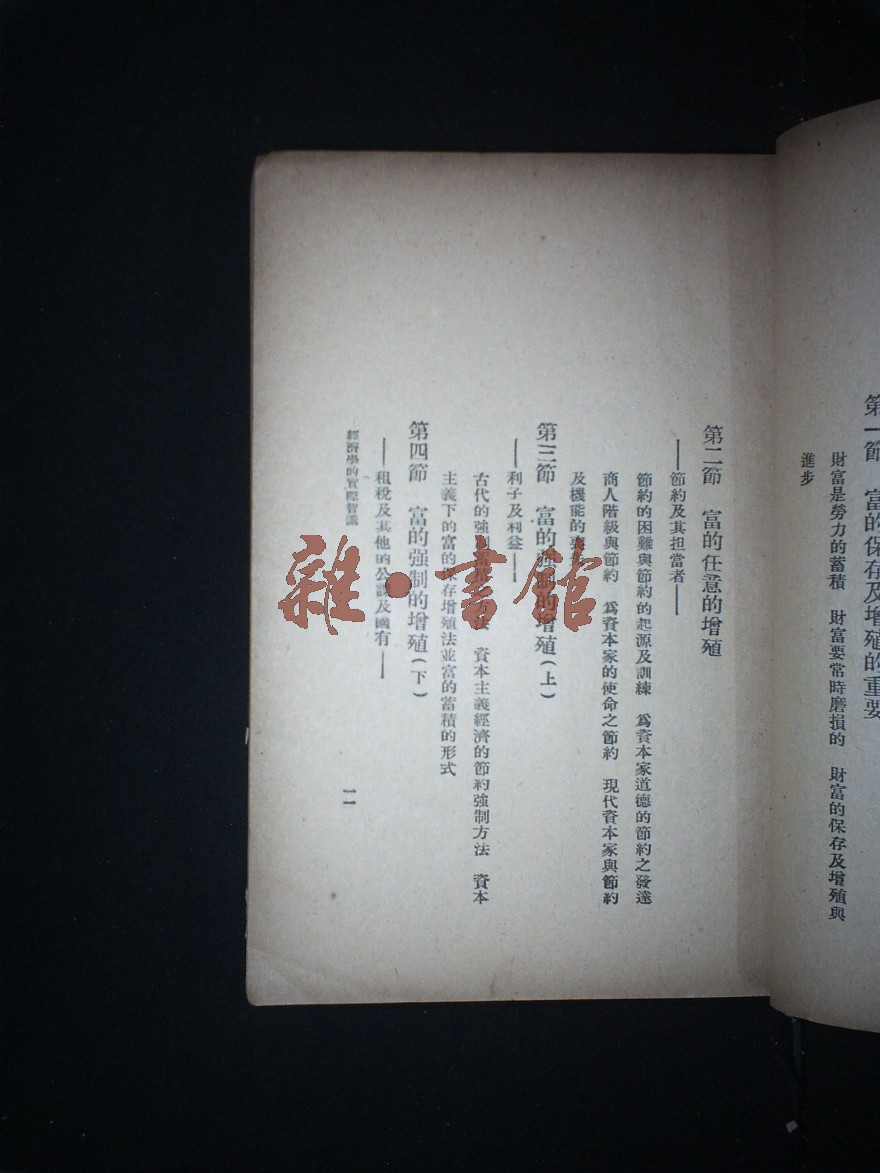 第一節　富的保存及增殖的重要
財富是勞力的蓄積　財富要常時磨損的　財富的保存及增殖與
進步
第二節　富的任意的增殖
——節約及其担當者——
節約的困難與節約的起源及訓練　爲資本家道德的節約之發達
商人階級與節約　爲資本家的使命之節約　現代資本家與節約
及機能的
第三節　富的强制的增殖(上)
——利子及利益——
古代的强制蓄積方法　資本主義經濟的節約强制方法　資本
主義下的富的保存增殖法並富的蓄積的形式
第四節　富的强制的增殖(下)
——租稅及其他的公課及國有——
經濟學的實際智識
一一
雜·書館